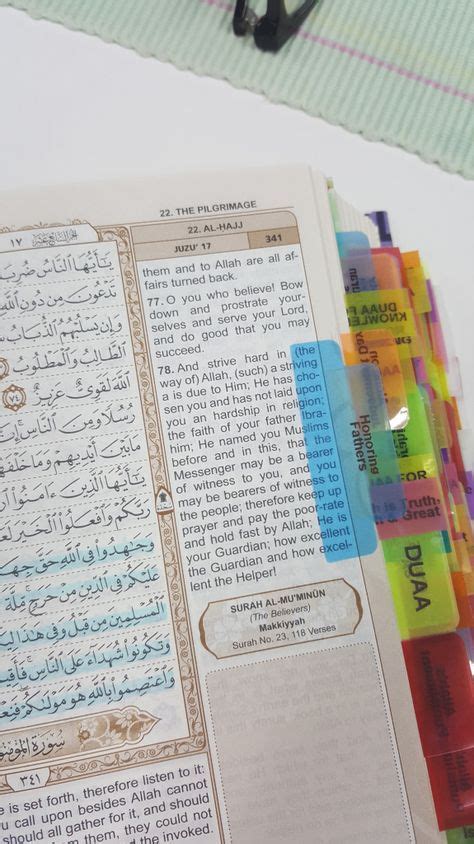 22. THE PILGRIMAGE
١٧
يَـٰٓأَيُّهَا ٱلنَّاسُ ضُرِبَ
تَدْعُونَ مِن دُونِ ٱللَّهِ
وَإِن يَسْلُبْهُمُ ٱلذُّبَابُ
ٱلطَّالِبُ وَٱلْمَطْلُوبُ
ٱللَّهَ لَقَوِىٌّ عَزِيزٌ ٧٤
رُسُلًا وَمِنَ ٱلنَّاسِ
مَا بَيْنَ أَيْدِيهِمْ وَمَا خَلْفَهُمْ
يَـٰٓأَيُّهَا ٱلَّذِينَ ءَامَنُوا۟
رَبَّكُمْ وَٱفْعَلُوا۟ ٱلْخَيْرَ
وَجَـٰهِدُوا۟ فِى ٱللَّهِ حَقَّ
عَلَيْكُمْ فِى ٱلدِّينِ مِنْ حَرَجٍ مِّلَّةَ
ٱلْمُسْلِمِينَ مِن قَبْلُ وَفِى هَـٰذَا
وَتَكُونُوا۟ شُهَدَآءَ عَلَى ٱلنَّاسِ
وَٱعْتَصِمُوا۟ بِٱللَّهِ هُوَ مَوْلَىٰكُمْ
٣٤١
is set forth, therefore listen to it:
call upon besides Allah cannot
should all gather for it, and should
them, they could not
the invoked.
22. AL-HAJJ
JUZU' 17 341
them and to Allah are all af-
fairs turned back.
77. O you who believe! Bow
down and prostrate your-
selves and serve your Lord,
and do good that you may
succeed.
78. And strive hard in (the
way of) Allah, (such) a striving
a is due to Him; He has cho-
sen you and has not laid upon
you an hardship in religion;
the faith of your father Ibra-
him; He named you Muslims
before and in this, that the
Messenger may be a bearer
of witness to you, and you
may be bearers of witness to
the people; therefore keep up
prayer and pay the poor-rate
and hold fast by Allah; He is
your Guardian; how excellent
the Guardian and how excel-
lent the Helper!
SURAH AL-MU'MINŪN
(The Believers)
Makkiyyah
Surah No. 23, 118 Verses
DUAA FOR
KNOWLE
Honoring
Fathers
DUAA